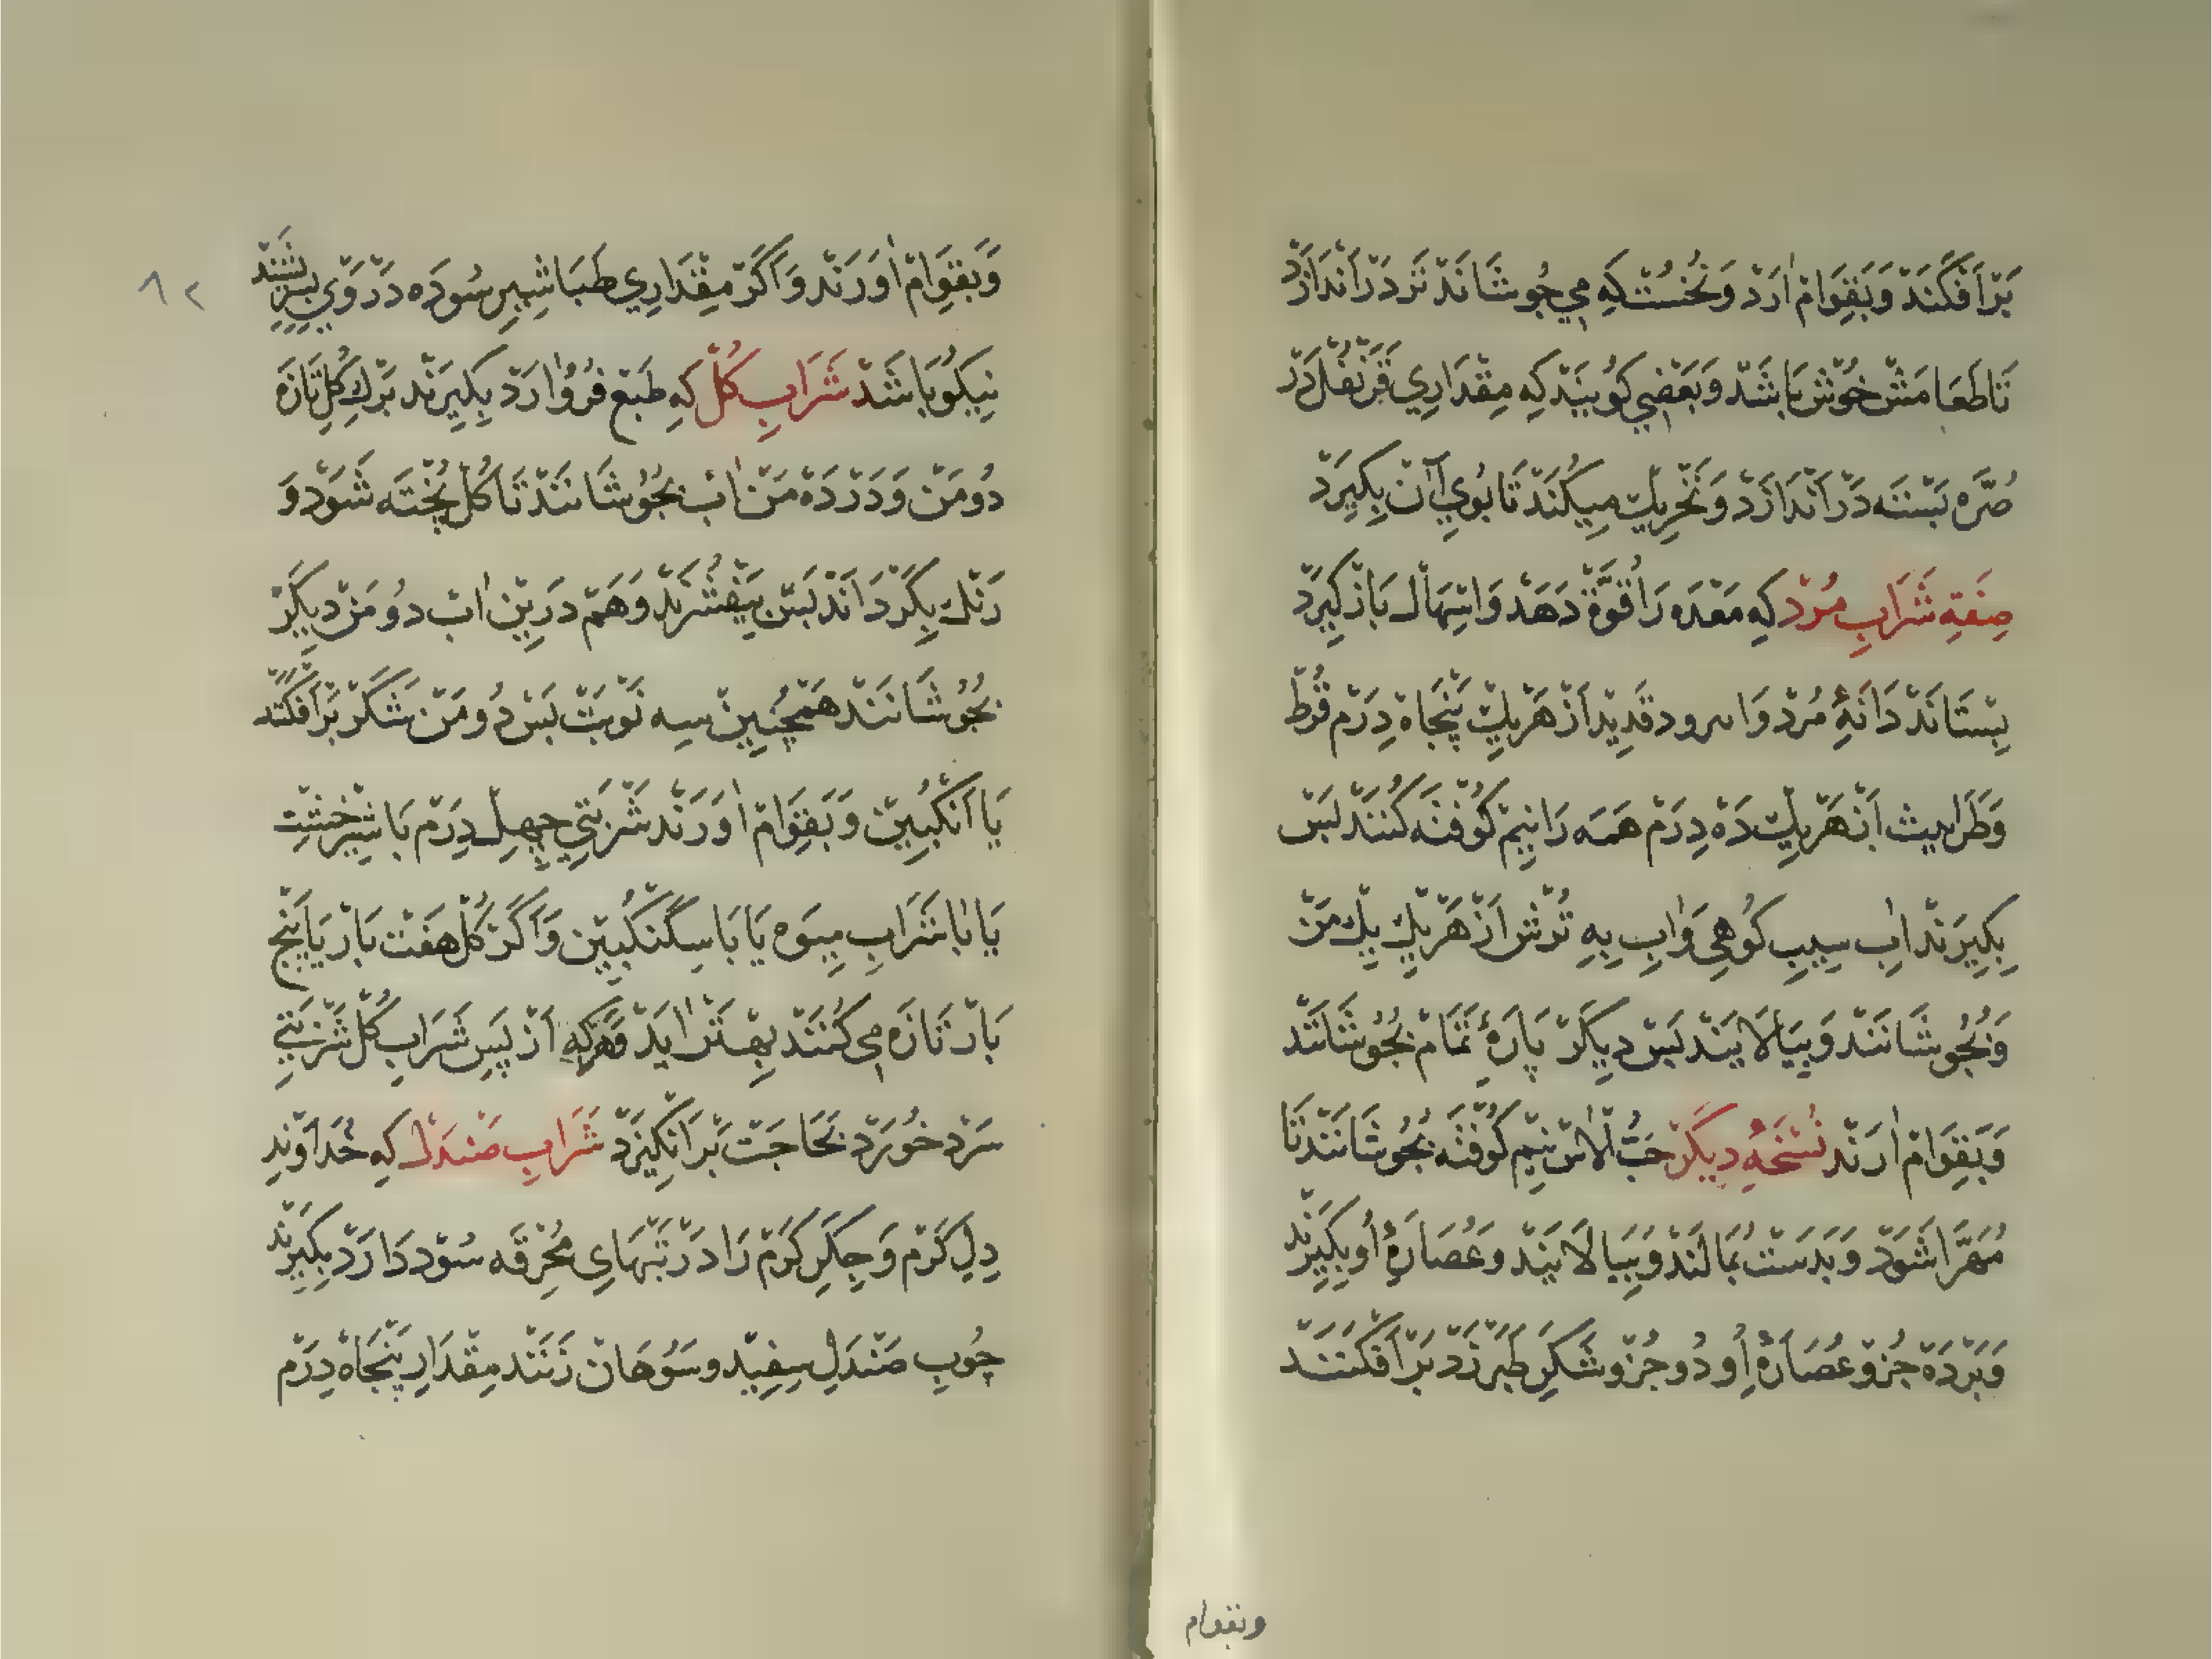 بَرْاَفْگَنَدْ وَبَقِوَامْ اٰرَدْ وَنُخُسْتْ كَهِ مِي جُوشَانَدْ تَرْ دَرْاَنْدَازَدْ
تَاطَعَامَشْ خُوْشْ بَاشَدْ وَبَعْضِي كُويَنْد كِه مِقْدَارِي قَرَنْفُلْ دَرْ
صُرَّه بَسْتَه دَرْاَنْدَازَدْ وَتَحْرِيكْ مِيكُنَدْ تَا بُويِ آنْ بِكِيرَدْ
صِفَتِهِ شَرَابِ مُرْدْ كِه مَعْدَه رَا قُوَّةْ دَهَدْ وَاسْهَالْ بَازْ كِيرَدْ
بِسْتَانَدْ دَانَهٔ مُرْدْ وَامرود قَدِيدْ اَزْ هَرْيِكْ پَنْجَاهْ دِرَمْ قُرْطْ
وَطَرَاثِيثْ اَزْ هَرْيِكْ دَهْ دِرَمْ هَمَه رَا نِيمْ كُوْفْتَه كُنَنْدْ پَسْ
بِكِيرَنْدْ اٰبِ سِيبِ كُوهِي وَاٰبِ بِهِ تُرْشْ اَزْ هَرْيِكْ يِكْ مَنْ
وَبُجُوشَانَنْد وَبِيَالَايَنْد پَسْ دِيكَرْ پَارَهْٔ تَمَامْ بُجُوشَانَنْد
وَبَقِوَامْ اٰرَنْد نُسْخَهٔ دِيكَرْ حَبُّ الْاٰسْ نِيمْ كُوْفْتَه بُجُوشَانَنْد تَا
مُهَرَّا شَوَدْ وَبَدَسْتْ بُمَالَنْد وَبِيَالَايَنْد وَعُصَارَهٔ اُو بِكِيرَنْد
وَبَرْدَهْ جُزْو عُصَارَهٔ اُو دُو جُزْو شَكَرِ طَبَرْزَدْ بَرْاَفْكَنَنْد
وبقوام
٨٢
وَبَقِوَامْ اٰوَرَنْد وَاَكَرْ مِقْدَارِي طَبَاشِيرِ سُودَه دَرْ وَيْ بِسِرِشَنْد
نِيكُو بَاشَدْ شَرَابِ كُلْ كِه طَبْعْ فُرُوْاٰرَدْ بِكِيرَنْد بَرْكِ كُلِ تَازَه
دُو مَنْ وَدَرْ دَهْ مَنْ اٰبْ بُجُوْشَانَنْدْ تَا كُلْ پُخْتَه شَوَدْ وَ
رَنْكْ بِكَرْدَانَدْ پَسْ بِيَفْشُرَنْد وَهَمْ دَرِينْ اٰبْ دُو مَنْ دِيكَرْ
بُجُوشَانَنْد هَمْچُنِينْ سِه نَوْبَتْ پَسْ دُو مَنْ شَكَرْ بَرْاَفْكَنَنْد
يَا اَنْكَبِينْ وَبَقِوَامْ اٰوَرَنْد شَرْبَتِي چِهِلْ دِرَمْ بَا شِيرْخِشْتْ
يَا بَا شَرَابِ مِيوَه يَا بَا سِكَنْكُبِينْ وَاَكَرْ كُلْ هَفْتْ بَارْ يَا پَنْجْ
بَارْ تَازَه مِي كُنَنْد بِهْتَرْ اٰيَدْ وَهَرْكِه اَزْ پَسِ شَرَابِ كُلْ شَرْبَتِي
سَرْدْ خُورَدْ بَحَاجَتْ بَرْاَنْكِيزَدْ شَرَابِ صَنْدَلْ كِه خُدَاوَنْدِ
دِلِ كَرْم وَجِكَرِ كَرَمْ رَا دَرْ تَبْهَاىِ مُحْرِقَه سُوْد دَارَدْ بِكِيرَنْد
چُوبِ صَنْدَلِ سِفِيدْ وسُوهَانْ زَنَنْد مِقْدَارِ پَنْجَاهْ دِرَمْ